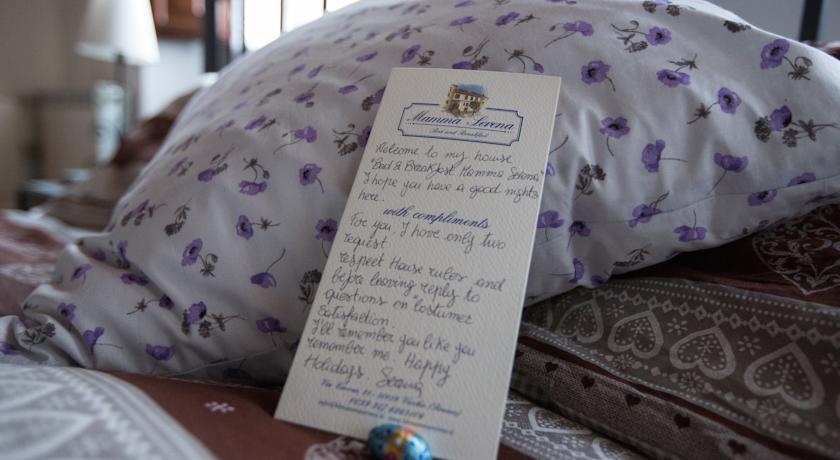 Mamma Serena
Bed and Breakfast
Welcome to my house
"Bed & Breakfast Mamma Serena"
I hope you have a good nights
here.
with compliments
For you, I have only two
request.
respect House rules and
before leaving reply to
questions on "costumer
Satisfaction.
I'll remember you like you
remember me. Happy
Holidays Serena
Via